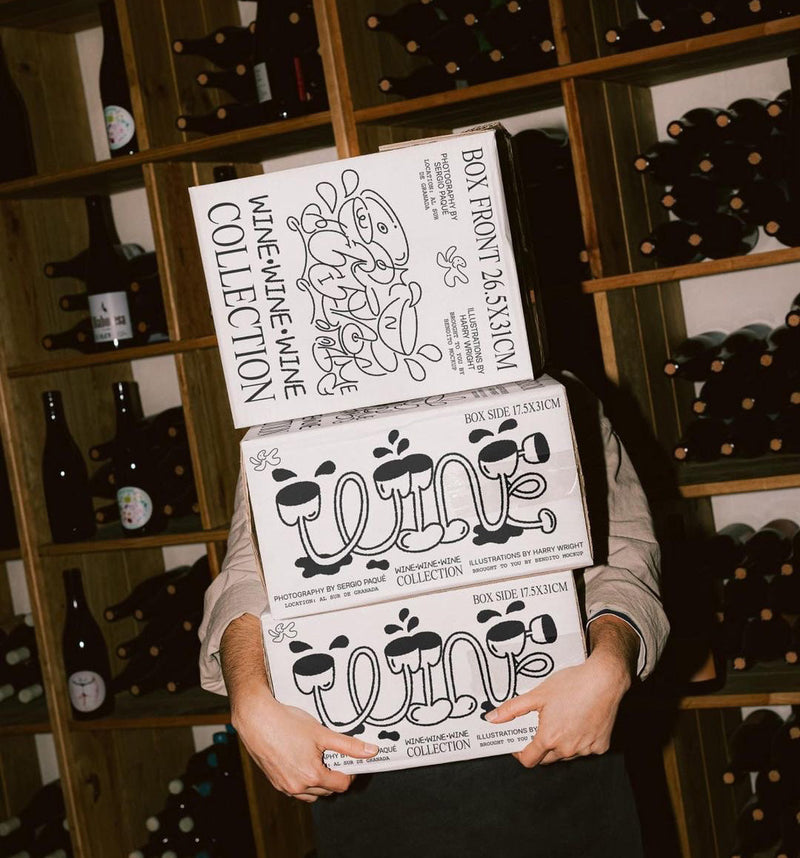 BOX FRONT 26.5X31CM
PHOTOGRAPHY BY
SERGIO PAQUÉ
LOCATION: AL SUR
DE GRANADA
ILLUSTRATIONS BY
HARRY WRIGHT
BROUGHT TO YOU BY
BENDITO MOCKUP
WINE•WINE•WINE
COLLECTION
BOX SIDE 17.5X31CM
WINE
PHOTOGRAPHY BY SERGIO PAQUÉ
LOCATION: AL SUR DE GRANADA
WINE•WINE•WINE
COLLECTION
ILLUSTRATIONS BY HARRY WRIGHT
BROUGHT TO YOU BY BENDITO MOCKUP
BOX SIDE 17.5X31CM
WINE
PHY BY SERGIO PAQUÉ
AL SUR DE GRANADA
WINE•WINE•WINE
COLLECTION
ILLUSTRATIONS BY
BROUGHT TO YOU